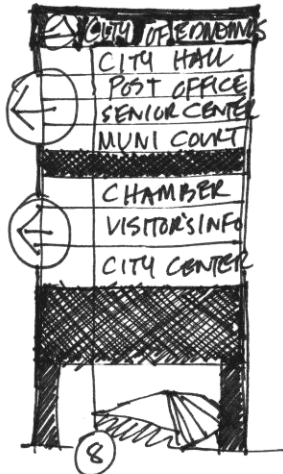 CITY OF EDMONDS
CITY HALL
POST OFFICE
SENIOR CENTER
MUNI COURT
CHAMBER
VISITOR'S INFO
CITY CENTER
8